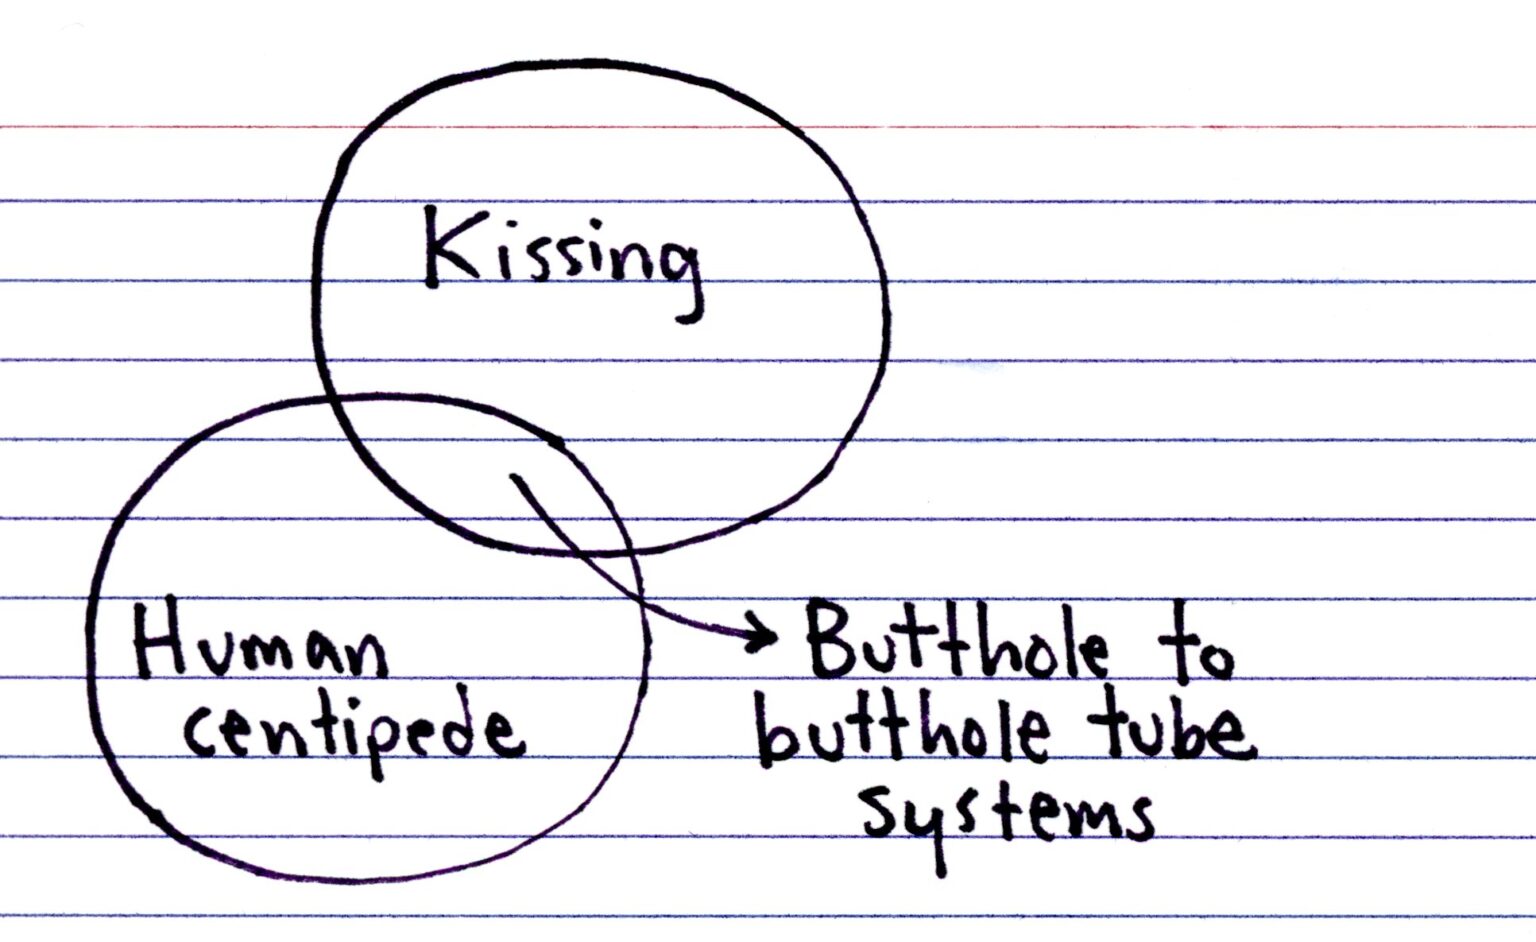 Kissing
Human
centipede
Butthole to
butthole tube
systems